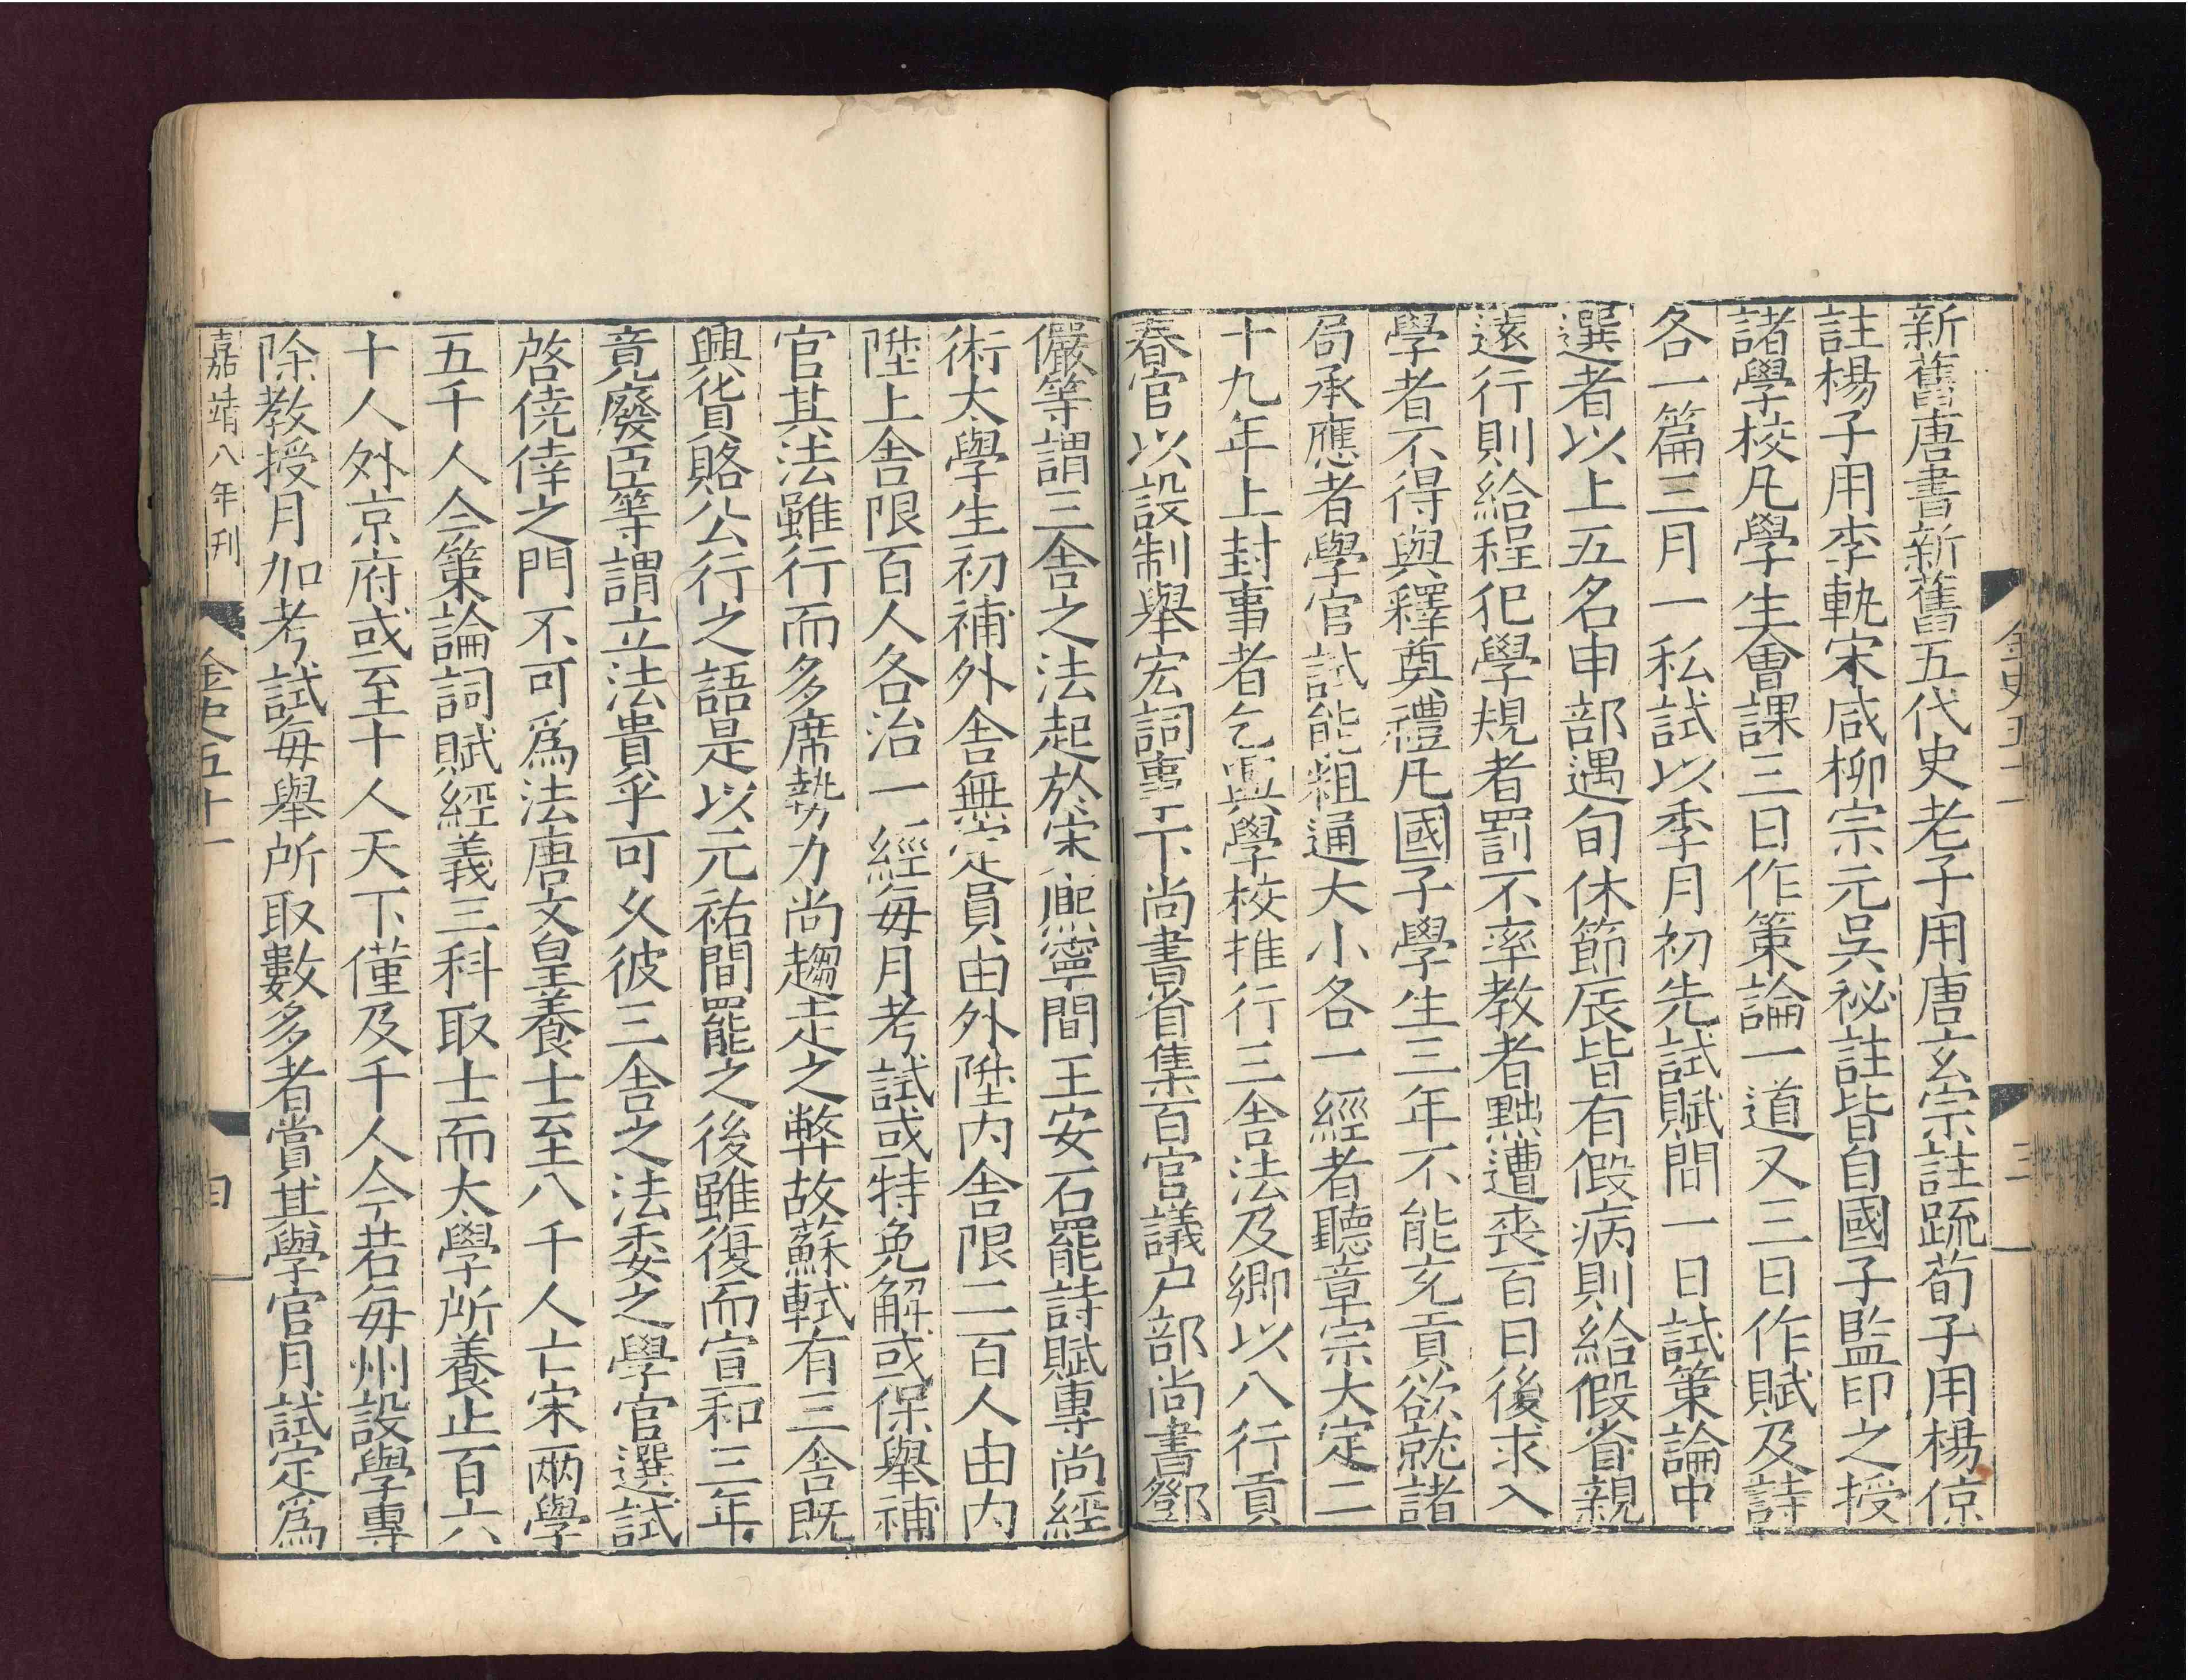 新舊唐書新舊五代史老子用唐玄宗註疏荀子用楊倞
註楊子用李軌宋咸柳宗元吳祕註皆自國子監印之授
諸學校凡學生會課三日作策論一道又三日作賦及詩
各一篇三月一私試以季月初先試賦間一日試策論中
選者以上五名申部遇旬休節辰皆有假病則給假省親
遠行則給程犯學規者罰不率教者黜遭喪百日後求入
學者不得與釋奠禮凡國子學生三年不能充貢欲就諸
局承應者學官試能粗通大小各一經者聽章宗大定二
十九年上封事者乞興學校推行三舍法及鄉以八行貢
春官以設制舉宏詞事下尚書省集百官議户部尚書鄧
儼等謂三舍之法起於宋熙寧間王安石罷詩賦專尚經
術太學生初補外舍無定員由外陞内舍限二百人由内
陞上舍限百人各治一經每月考試或特免解或保舉補
官其法雖行而多席勢力尚趨走之弊故蘇軾有三舍既
興貨賂公行之語是以元祐間罷之後雖復而宣和三年
竟廢臣等謂立法貴乎可久彼三舍之法委之學官選試
啓僥倖之門不可爲法唐文皇養士至八千人亡宋兩學
五千人今策論詞賦經義三科取士而太學所養止百六
十人外京府或至十人天下僅及千人今若每州設學專
除教授月加考試每舉所取數多者賞其學官月試定爲
嘉靖八年刊
金史五十一
四